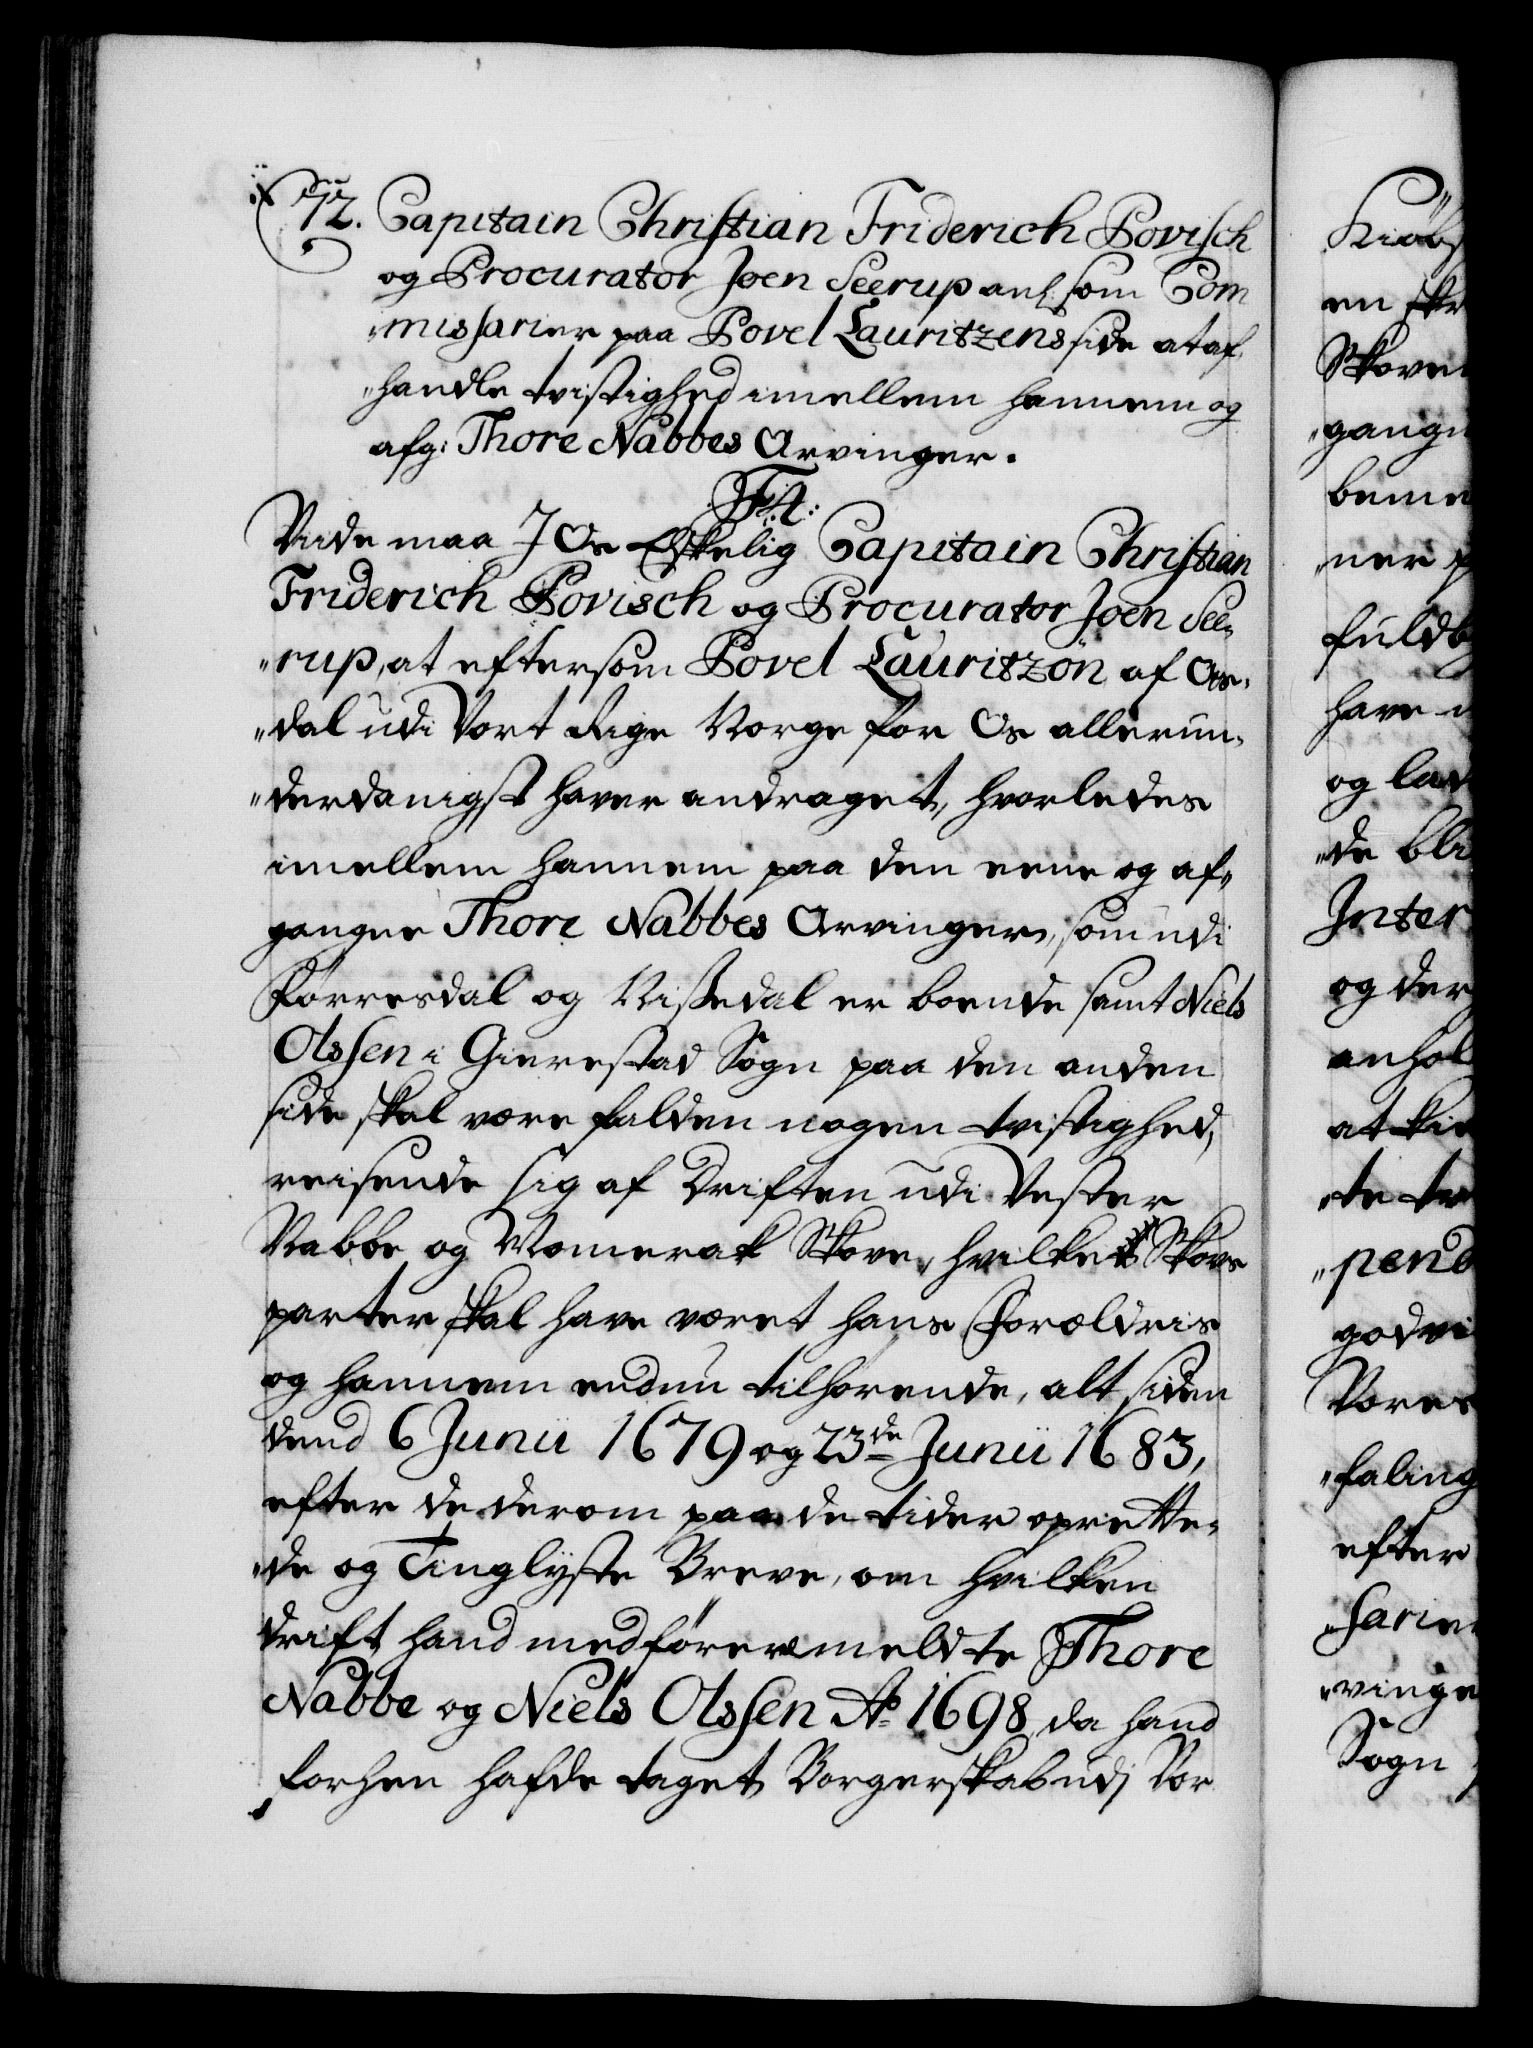 72. Capitain Christian Friderich Povisch
og Procurator Joen Seerup anl: som Com
"missarier paa Povel Lauritzens side at af,
"handle tvistighed imellem hannem og
afg: Thore Nabbes Arvinger.
F:4:
Viide maa I Os Elskelig Capitain Christian
Friderich Povisch og Procurator Joen See,
"rup, at eftersom Povel Lauritzøn af Os,
"dal udi Vort Rige Norge for Os allerun,
"derdanigst haver andraget, hvorledes
imellem hannem paa den eene og af,
gangne Thore Nabbes Arvinger, som udi
Førresdal og Nissedal er boende samt Niels
Olssen i Gierestad Sogn paa den anden
side skal være falden nogen tvistighed,
reisende sig af Driften udi Vester
Nabbe og Momerak Skove, hvilke Skove
parter skal have været hans Forældris
og hannem endnu tilhørende, alt siden
dend 6 Junii 1679 og 23de Junii 1683,
efter de derom paa de tider oprette,
"de og Tinglyste Breve, om hvilken
drift hand med førermeldte Thore
Nabbe og Niels Olssen Ao 1698 da hand
forhen hafde taget Borgerskab udj Vor
Kiøbs
en skr
Skove
"gangn
beme
"ner p
fuldb
have
og lad
"de bli
Inter
og der
anhol
at kie
"te tv
"pend
godvi
Vores
"faling
efter
"sarie
"vinge
Sogn